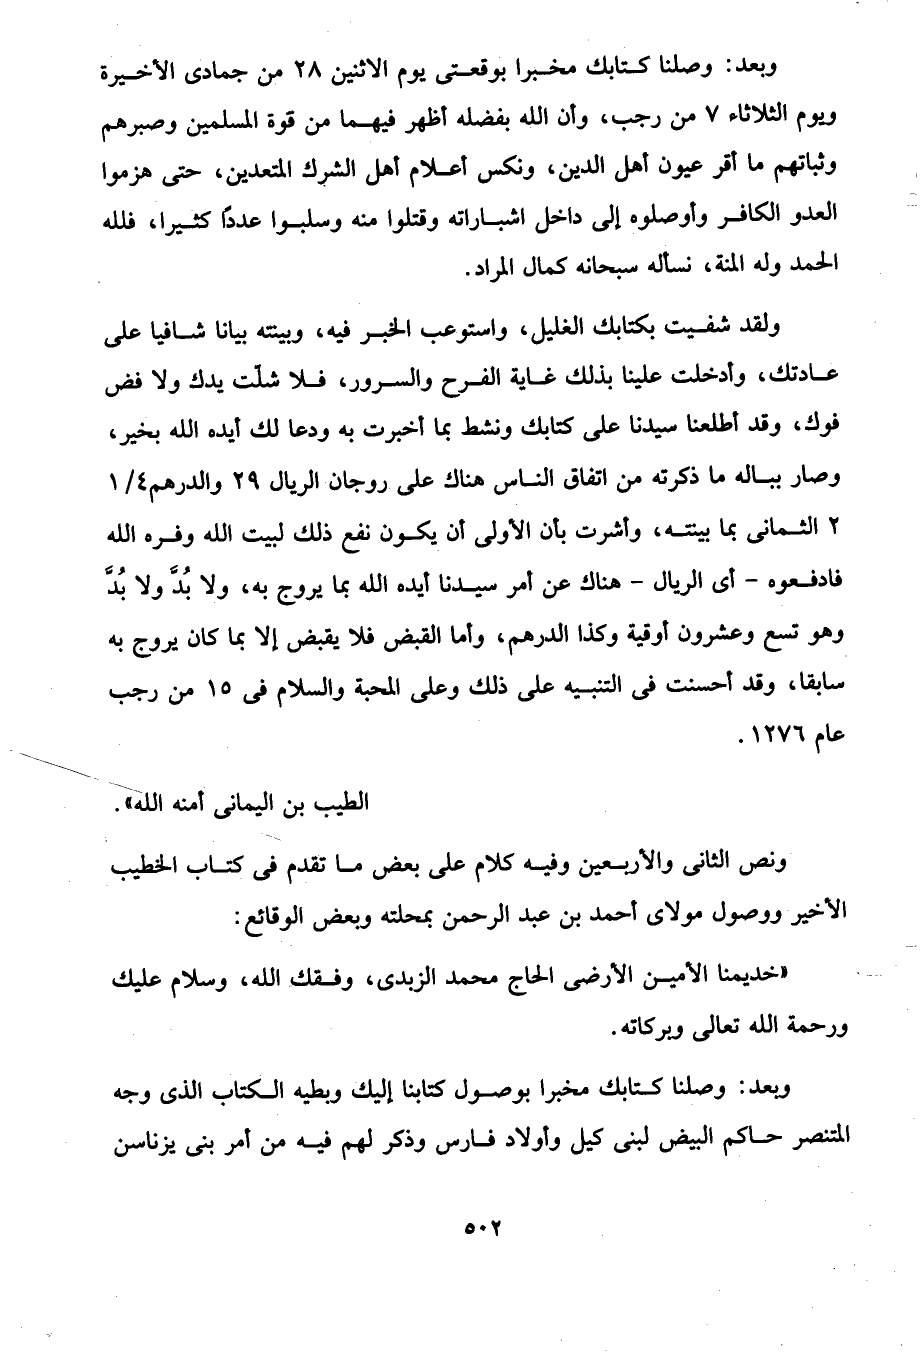 وبعد: وصلنا كتابك مخبرا بوقعتى يوم الاثنين ٢٨ من جمادى الأخيرة
ويوم الثلاثاء ٧ من رجب، وأن الله بفضله أظهر فيهما من قوة المسلمين وصبرهم
وثباتهم ما أقر عيون أهل الدين، ونكس أعلام أهل الشرك المتعدين، حتى هزموا
العدو الكافر وأوصلوه إلى داخل اشباراته وقتلوا منه وسلبوا عددًا كثيرا، فلله
الحمد وله المنة، نسأله سبحانه كمال المراد.
ولقد شفيت بكتابك الغليل، واستوعب الخبر فيه، وبينته بيانا شافيا على
عادتك، وأدخلت علينا بذلك غاية الفرح والسرور، فلا شلّت يدك ولا فض
فوك، وقد أطلعنا سيدنا على كتابك ونشط بما أخبرت به ودعا لك أيده الله بخير،
وصار بباله ما ذكرته من اتفاق الناس هناك على روجان الريال ٢٩ والدرهم١/٤
٢ الثمانى بما بينته، وأشرت بأن الأولى أن يكون نفع ذلك لبيت الله وفره الله
فادفعوه - أى الريال - هناك عن أمر سيدنا أيده الله بما يروج به، ولا بُدَّ ولا بُدَّ
وهو تسع وعشرون أوقية وكذا الدرهم، وأما القبض فلا يقبض إلا بما كان يروج به
سابقا، وقد أحسنت فى التنبيه على ذلك وعلى المحبة والسلام فى ١٥ من رجب
عام ١٢٧٦.
الطيب بن اليمانى أمنه الله».
ونص الثانى والأربعين وفيه كلام على بعض ما تقدم فى كتاب الخطيب
الأخير ووصول مولاى أحمد بن عبد الرحمن بمحلته وبعض الوقائع:
«خديمنا الأمين الأرضى الحاج محمد الزبدى، وفقك الله، وسلام عليك
ورحمة الله تعالى وبركاته.
وبعد: وصلنا كتابك مخبرا بوصول كتابنا إليك وبطيه الكتاب الذى وجه
المتنصر حاكم البيض لبنى كيل وأولاد فارس وذكر لهم فيه من أمر بنى يزناسن
٥٠٢